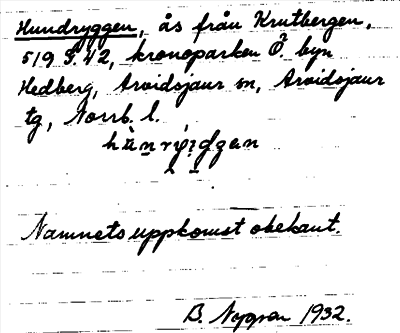 Hundryggen, ås från Krutbergen,
519 S. 42, kronoparken Ö. byn
Hedberg, Arvidsjaur sn, Arvidsjaur
tg, Norrb. l.
Namnets uppkomst obekant.
B. Nygren 1932.